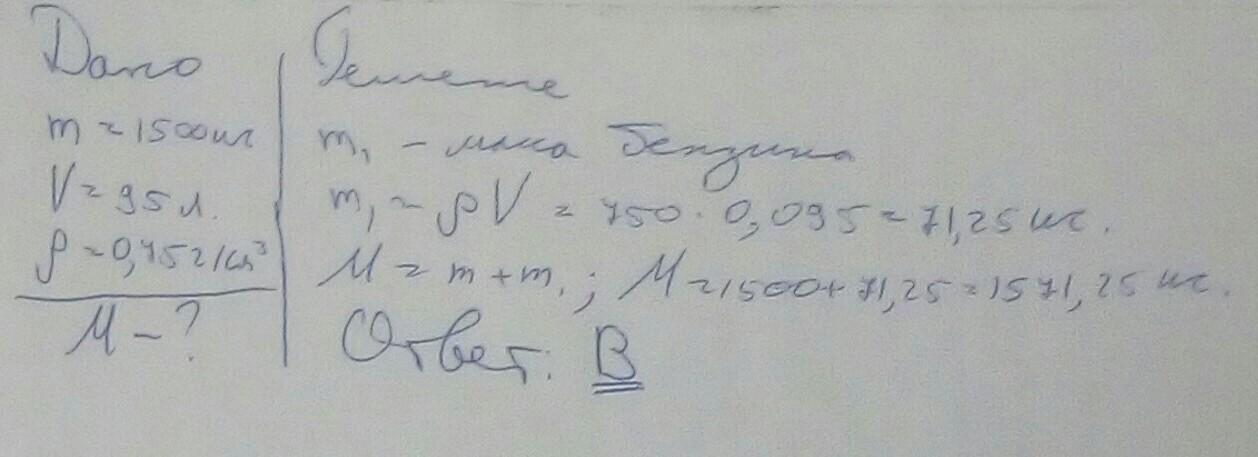 Дано
m = 1500 кг
V = 95 л.
ρ = 0,75 г/см³
M - ?
Решение
m₁ - масса бензина
m₁ = ρV = 750 · 0,095 = 71,25 кг.
M = m + m₁; M = 1500 + 71,25 = 1571,25 кг.
Ответ: B